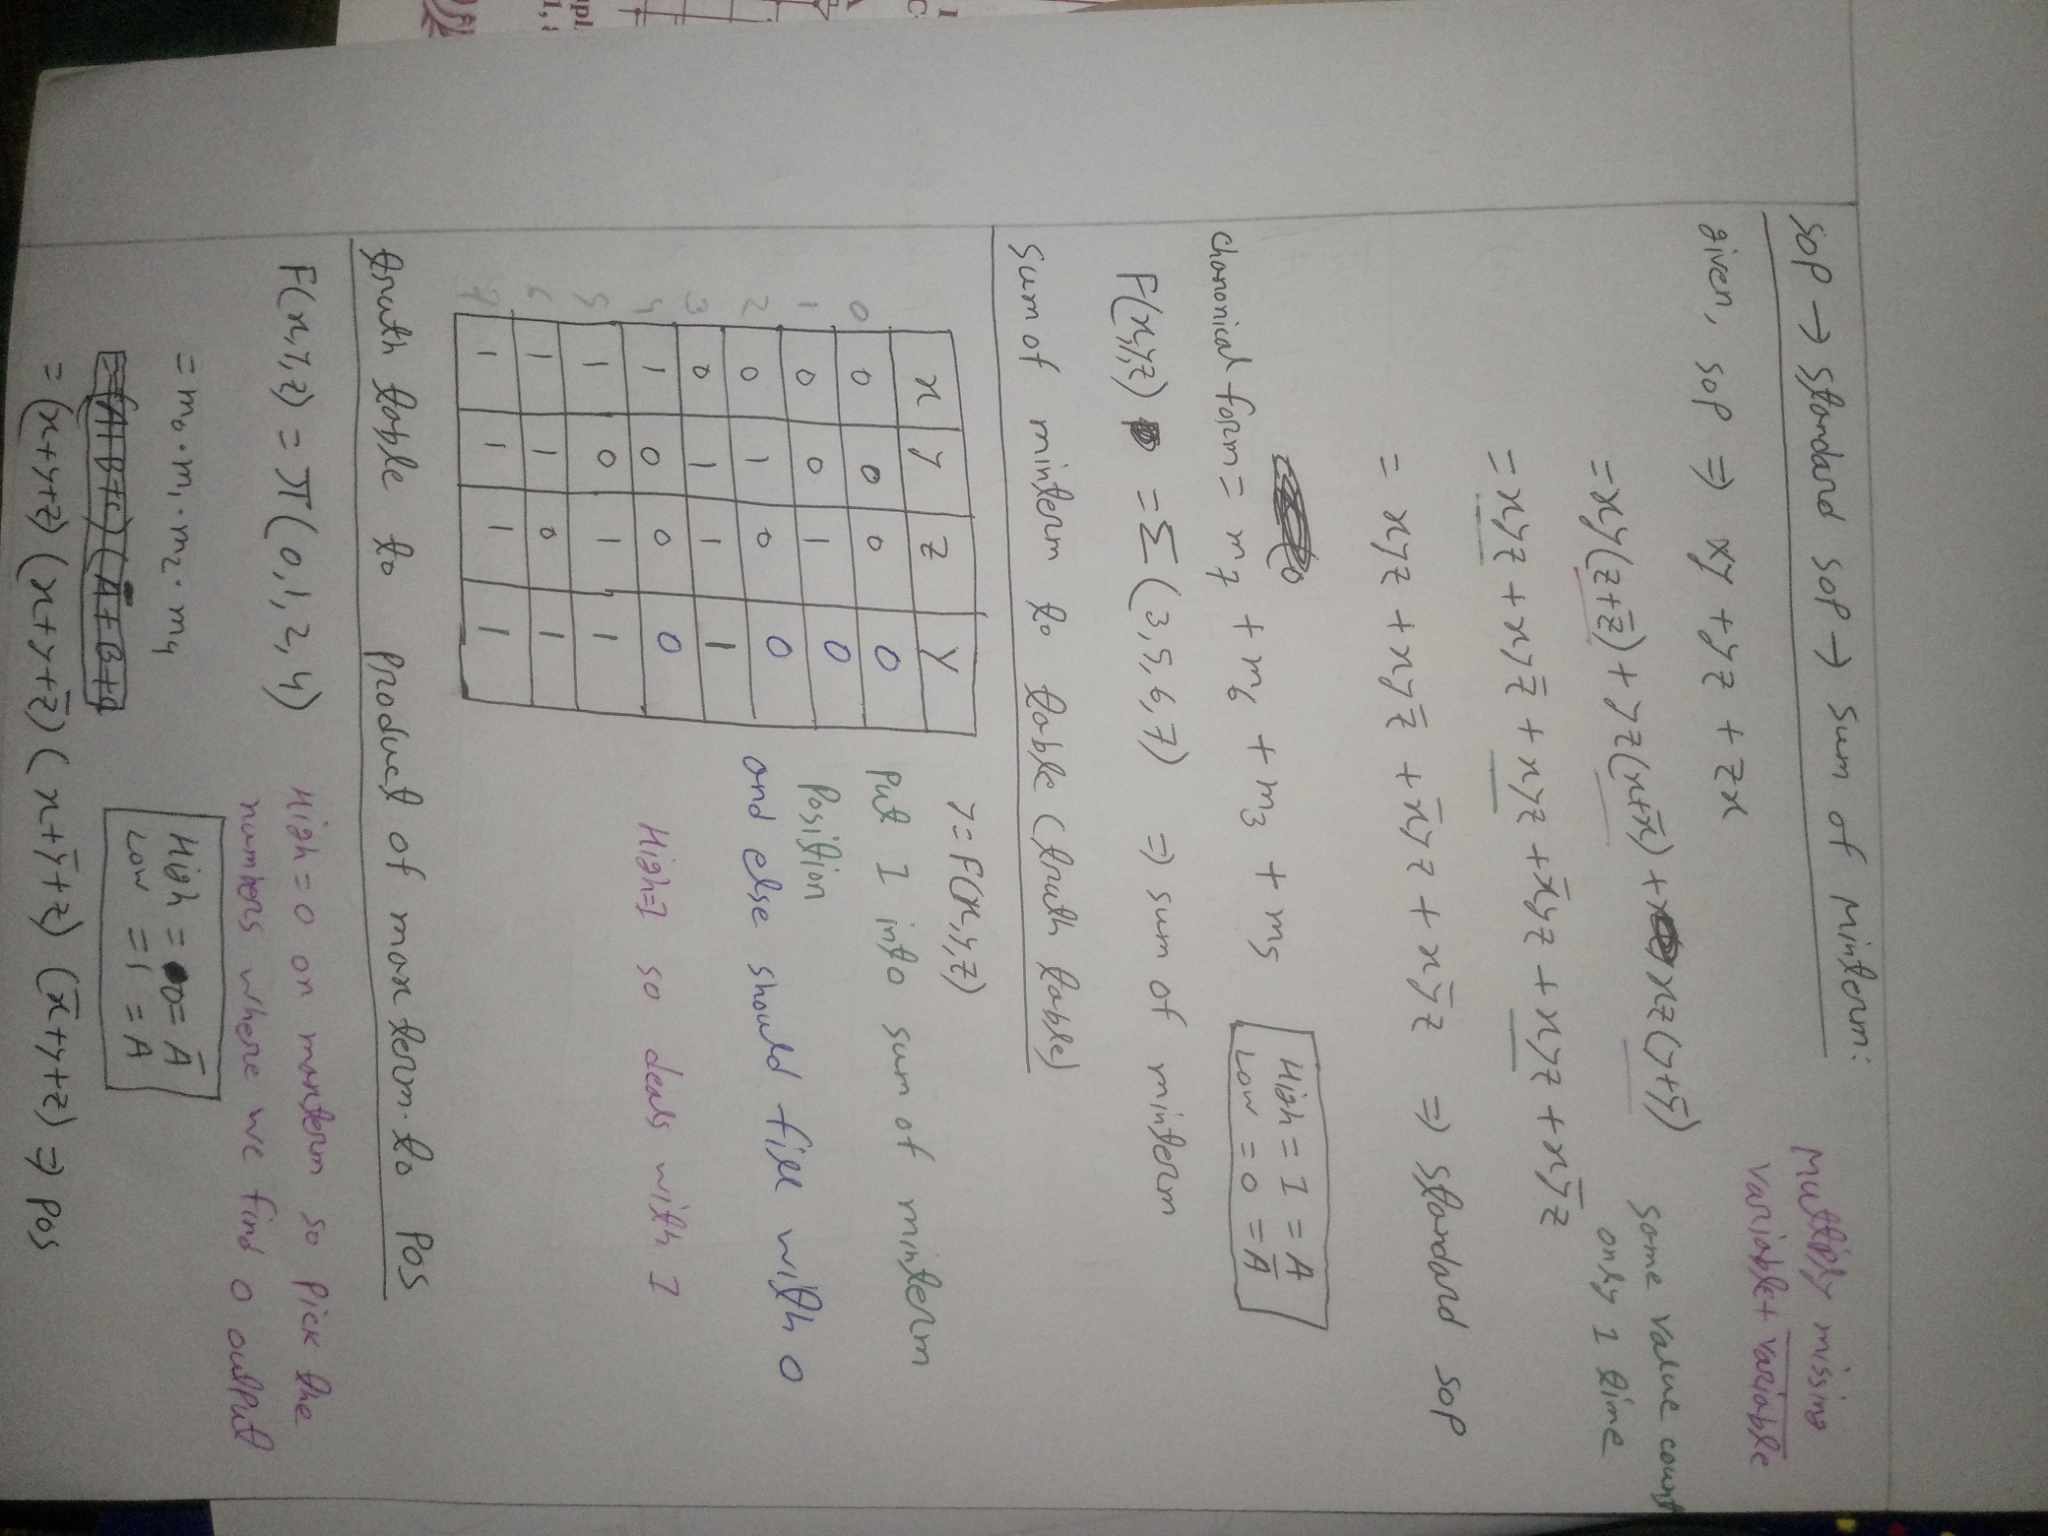 SOP → Standard SOP → Sum of Minterm:
Multiply missing
variable + v̅a̅r̅i̅a̅b̅l̅e̅
given, SOP ⇒ xy + yz + zx
= xy(z+z̅) + yz(x+x̅) + xz(y+y̅)
same value count
only 1 time
= xyz + xyz̅ + xyz + x̅yz + xyz + xy̅z
= xyz + xyz̅ + x̅yz + xy̅z ⇒ Standard SOP
High = 1 = A
Low = 0 = A̅
Chanonical form = m₇ + m₆ + m₃ + m₅
F(x,y,z) = Σ(3,5,6,7) ⇒ sum of minterm
Sum of minterm to table (truth table)
x y z Y
0 0 0 0 0
1 0 0 1 0
2 0 1 0 0
3 0 1 1 1
4 1 0 0 0
5 1 0 1 1
6 1 1 0 1
7 1 1 1 1
Y = F(x,y,z)
Put 1 into sum of minterm
Position
and else should fill with 0
High=1 so deals with 1
truth table to product of maxterm to POS
F(x,y,z) = π(0,1,2,4)
High = 0 on maxterm so Pick the
numbers where we find 0 output
= m₀.m₁.m₂.m₄
High = 0 = A̅
Low = 1 = A
= (x+y+z) (x+y+z̅) (x+y̅+z) (x̅+y+z) ⇒ POS